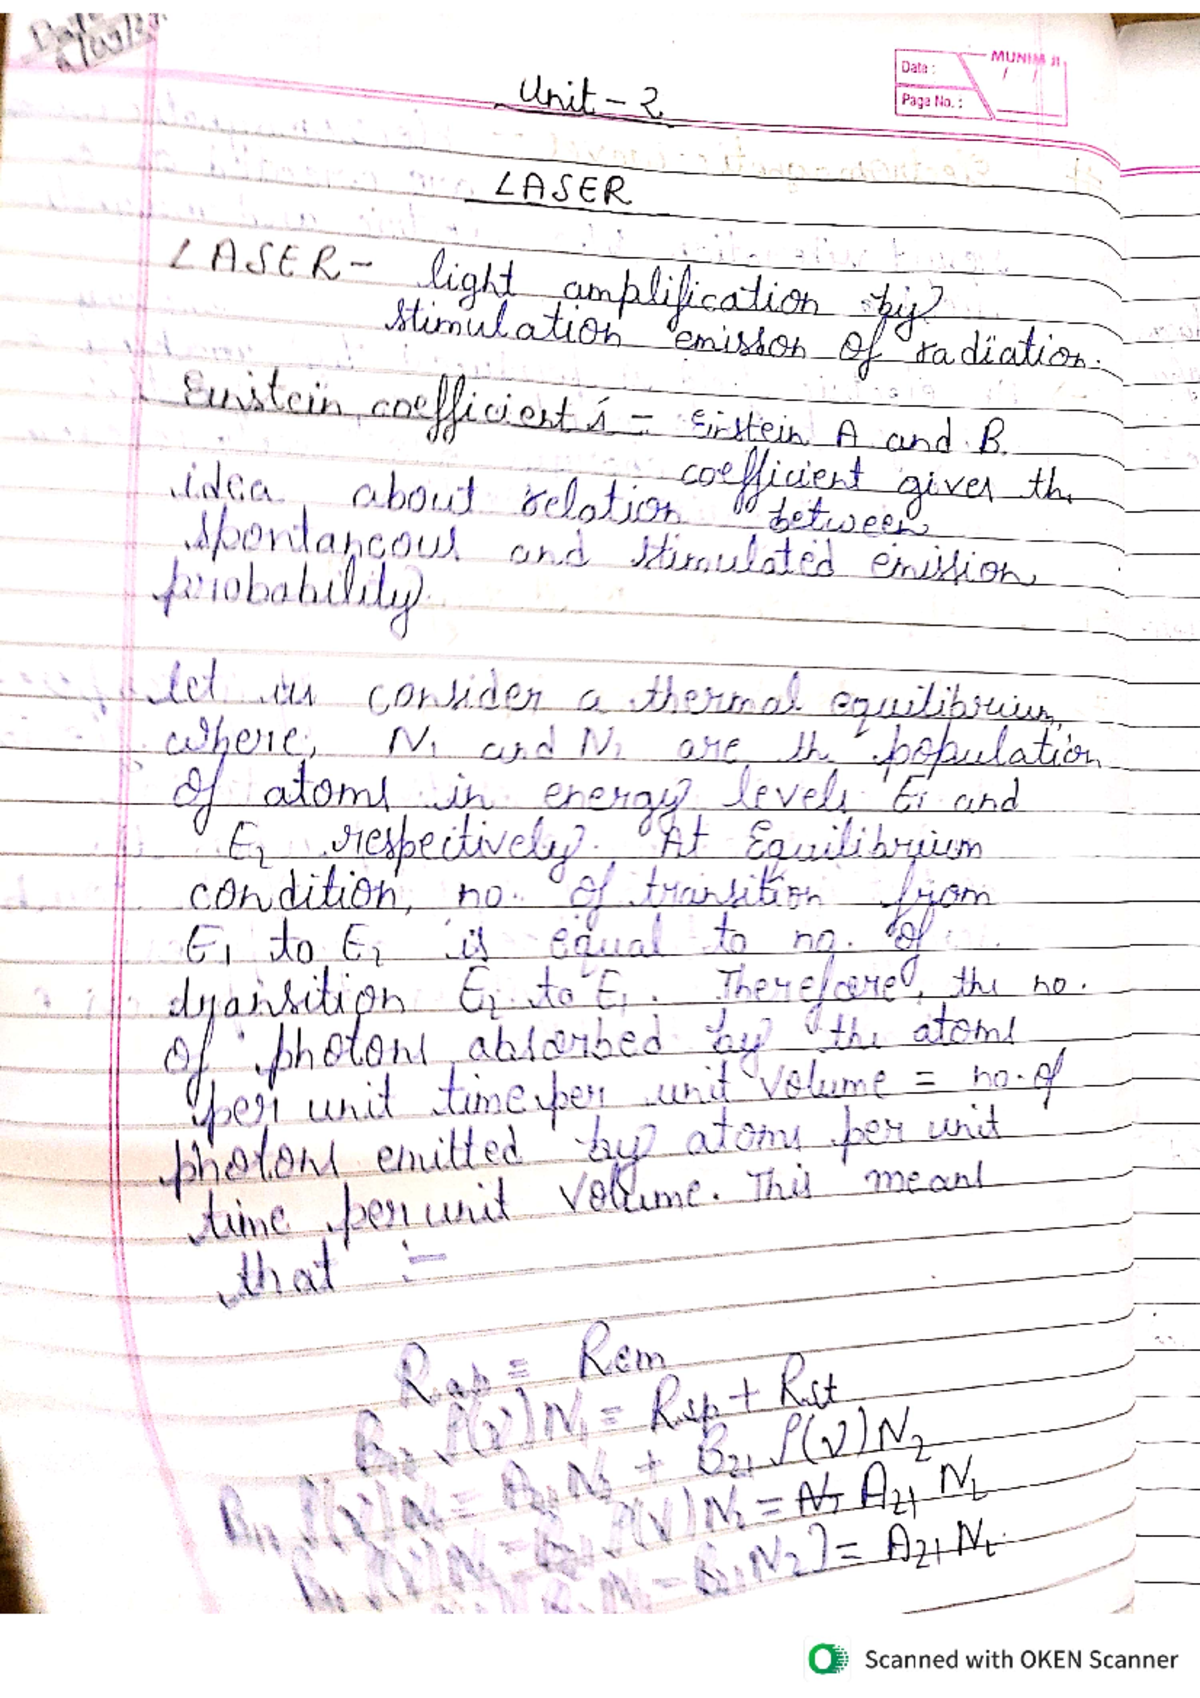 Date
MUNIM JI
Date :
Page No. :
Unit - 2
LASER
LASER - light amplification by
stimulation emisson of radiation.
Einstein coefficient s = Eirstein A and B.
coefficient gives the
idea about relation between
spontaneous and stimulated emission
probability.
let us consider a thermal equilibrium,
where, N₁ and N₂ are the population
of atoms in energy levels E₁ and
E₂ respectively. At Equilibrium
condition, no. of transition from
E₁ to E₂ is equal to no. of
dransition E₂ to E₁. Therefore, the no.
of photons absorbed by the atoms
per unit time per unit volume = no. of
photons emitted by atoms per unit
time per unit volume. This means
that :-
Rab = Rem
B₁₂ ρ(ν) N₁ = Rsp + Rst
B₁₂ ρ(ν) N₁ = A₂₁ N₂ + B₂₁ ρ(ν) N₂
ρ(ν) N₁ - B₂₁ ρ(ν) N₂ = A₂₁ N₂
N₁ - B₂₁ N₂] = A₂₁ N₂
Scanned with OKEN Scanner